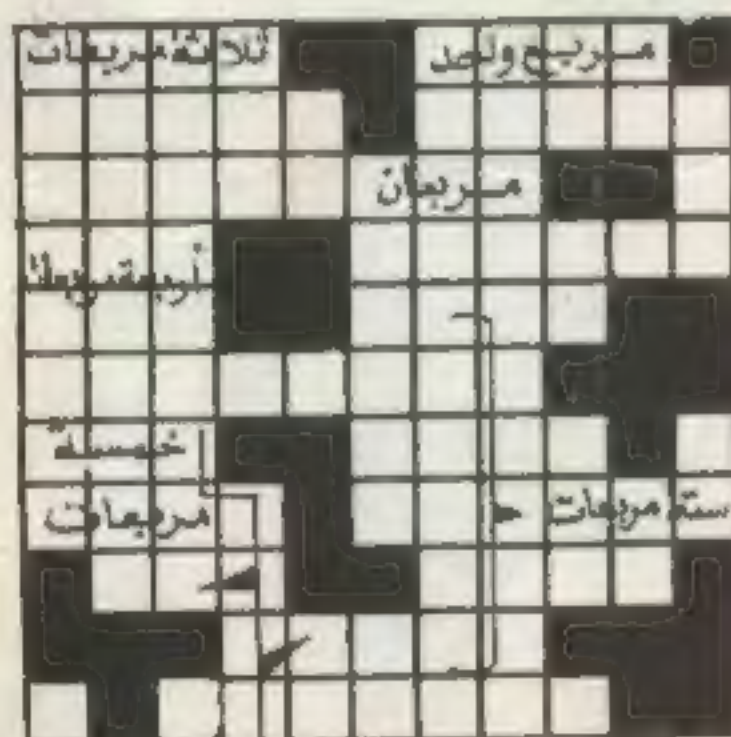 مربع واحد
ثلاثة مربعات
مربعان
أربعة مربعات
خمسة
مربعات
ستة مربعات